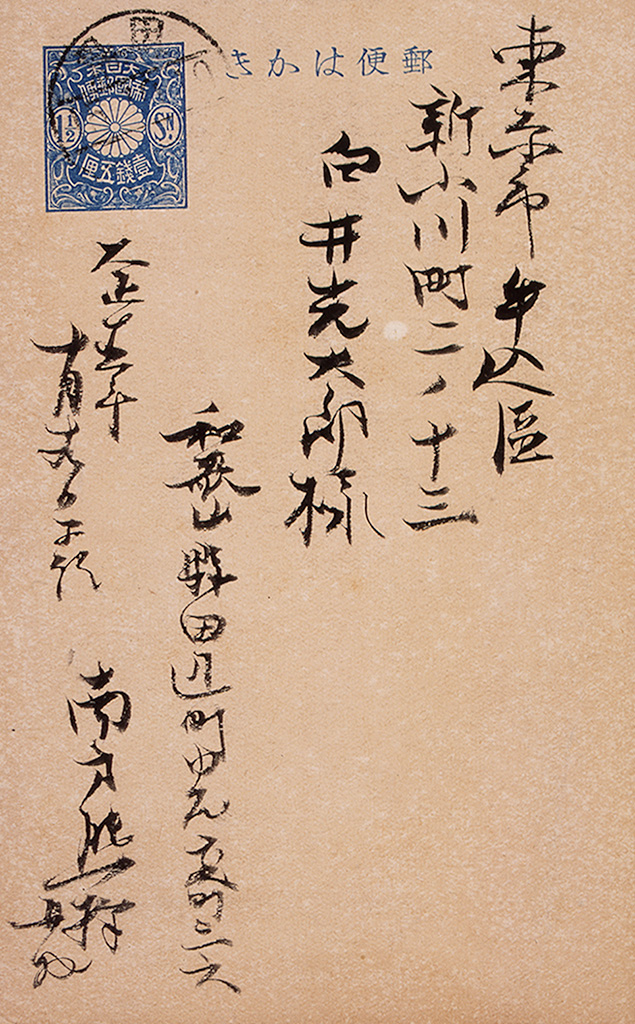 郵便はかき
大日本
帝國郵便
1½ Sn.
壹錢五厘
東京市牛込區
新小川町二ノ十三
向井光太郎様
和歌山縣田辺町中屋敷町三六
大正
南方熊楠